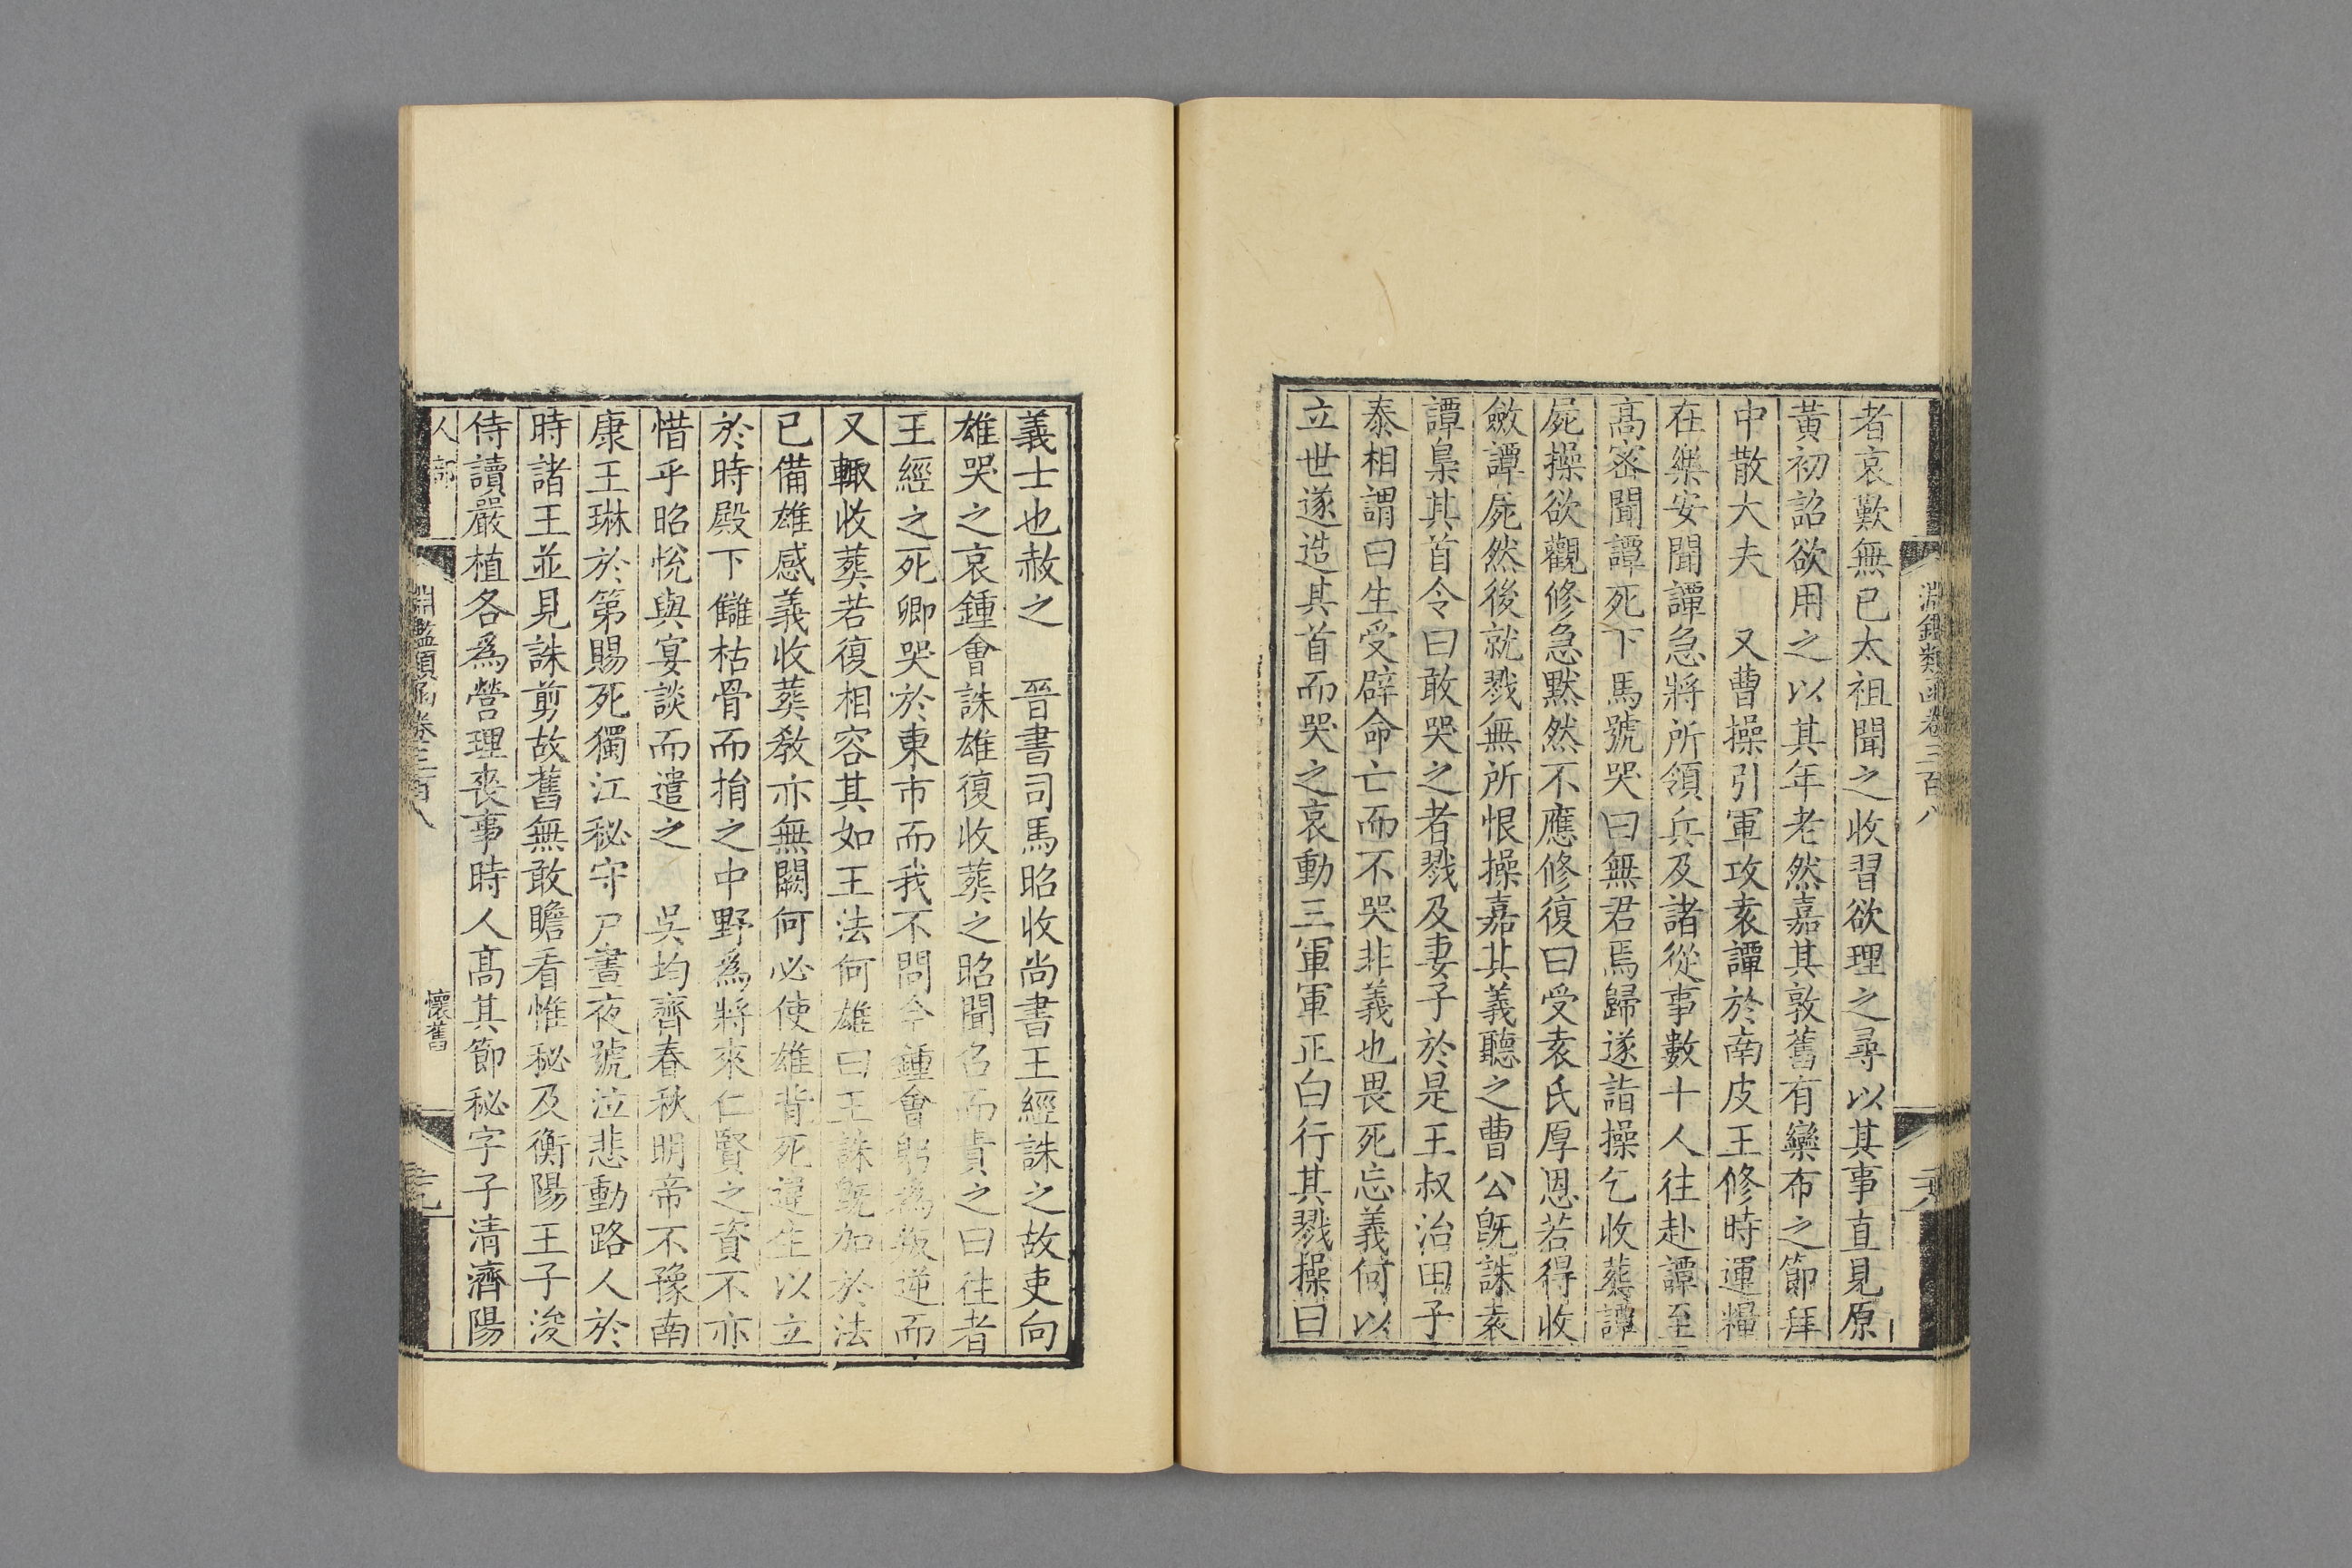 淵鑑類函卷三百八
者哀歎無已太祖聞之收習欲理之尋以其事直見原
黃初詔欲用之以其年老然嘉其敦舊有欒布之節拜
中散大夫　又曹操引軍攻袁譚於南皮王修時運糧
在樂安聞譚急將所領兵及諸從事數十人往赴譚至
高密聞譚死下馬號哭曰無君焉歸遂詣操乞收葬譚
屍操欲觀修急默然不應修復曰受袁氏厚恩若得收
斂譚屍然後就戮無所恨操嘉其義聽之曹公旣誅袁
譚梟其首令曰敢哭之者戮及妻子於是王叔治田子
泰相謂曰生受辟命亡而不哭非義也畏死忘義何以
立世遂造其首而哭之哀動三軍軍正白行其戮操曰
義士也赦之　晉書司馬昭收尚書王經誅之故吏向
雄哭之哀鍾會誅雄復收葬之昭聞召而責之曰往者
王經之死卿哭於東市而我不問今鍾會躬為叛逆而
又輒收葬若復相容其如王法何雄曰王誅旣加於法
已備雄感義收葬教亦無闕何必使雄背死違生以立
於時殿下讎枯骨而捐之中野為將來仁賢之資不亦
惜乎昭悅與宴談而遣之　吳均齊春秋明帝不豫南
康王琳於第賜死獨江秘守尸晝夜號泣悲動路人於
時諸王並見誅剪故舊無敢瞻看惟秘及衡陽王子浚
侍讀嚴植各爲營理喪事時人高其節秘字子清濟陽
人部　淵鑑類函卷三百八　懷舊